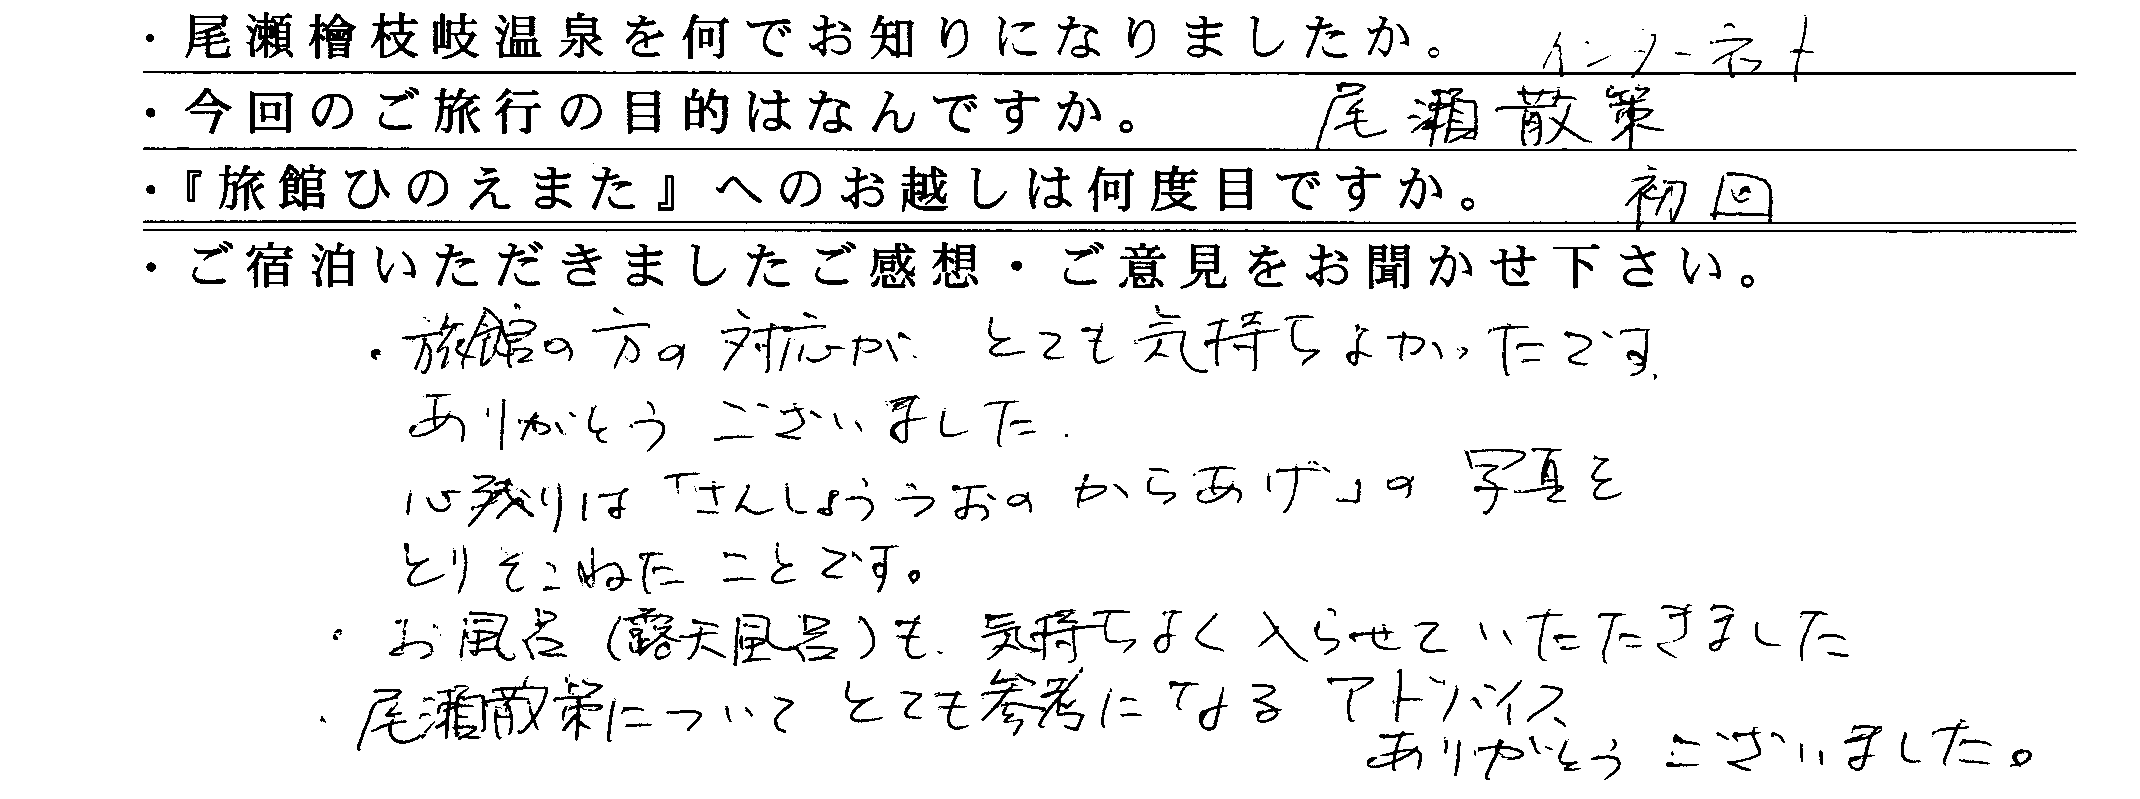 ・尾瀬檜枝岐温泉を何でお知りになりましたか。 インターネット
・今回のご旅行の目的はなんですか。 尾瀬散策
・『旅館ひのえまた』へのお越しは何度目ですか。 初回
・ご宿泊いただきましたご感想・ご意見をお聞かせ下さい。
・旅館の方の対応が、とても気持ちよかったです。
ありがとうございました.
心残りは「さんしょううおのからあげ」の写真を
とりそこねたことです。
・お風呂(露天風呂)も、気持ちよく入らせていただきました
・尾瀬散策についてとても参考になるアドバイス、
ありがとうございました。